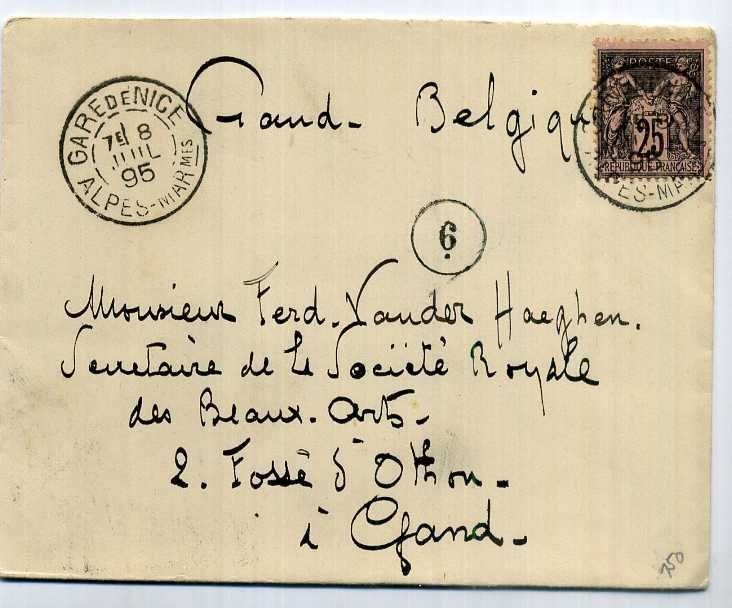 GARE DE NICE
7E 8
JUIL
95
ALPES-MARMES
Gand - Belgique
POSTE
25
REPUBLIQUE FRANÇAISE
ES-MA
6
Monsieur Ferd. Vander Haeghen.
Secretaire de la Société Royale
des Beaux-Arts-
2. Fossé d'Othon-
à Gand-
250